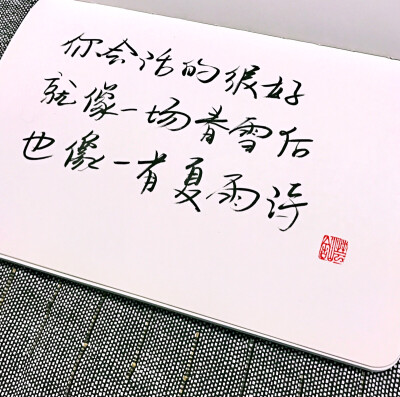 你会活的很好
就像一场春雪后
也像一首夏雨诗